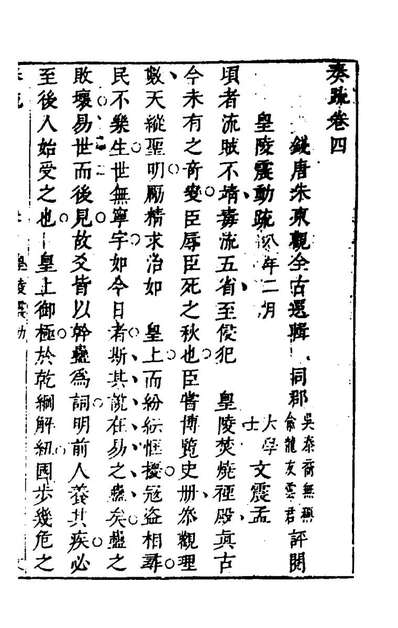 奏疏卷四
錢唐朱東觀全古選輯、同郡吳泰裔無無俞龍友雲君評閱
皇陵震動疏八年二月
大學士文震孟
頃者流賊不靖毒流五省至侵犯　皇陵焚燒禋殿真古
今未有之奇變臣辱臣死之秋也臣嘗博覽史册參觀理
數天縱聖明勵精求治如　皇上而紛紜恇擾寇盜相尋
民不樂生世無寧宇如今日者斯其說在易之蠱矣蠱之
敗壞易世而後見故爻皆以幹蠱爲詞明前人養其疾必
至後人始受之也　皇上御極於乾綱解紐國步幾危之